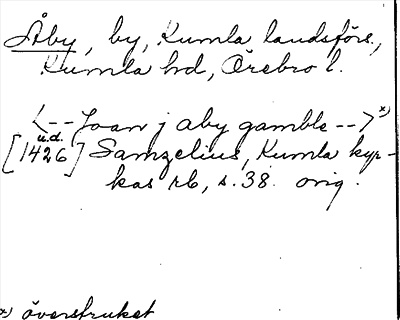 Åby, by, Kumla landsförs.,
Kumla hd, Örebro l.
<-- Joan j aby gamble -->x)
u.d.
[1426] Samzelius, Kumla kyr-
kas rb, s. 38. orig.
x) överstruket